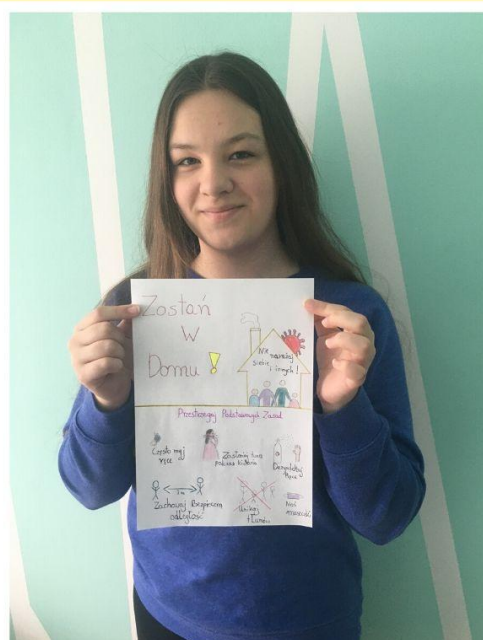 Zostań
w
Domu!
Nie narażaj
siebie
i innych!
Przestrzegaj Podstawowych Zasad
Często myj
ręce
Zasłaniaj
podczas
Dezynfekuj
ręce
1m
Zachowaj Bezpieczną
odległość
Unikaj
tłumów
Noś